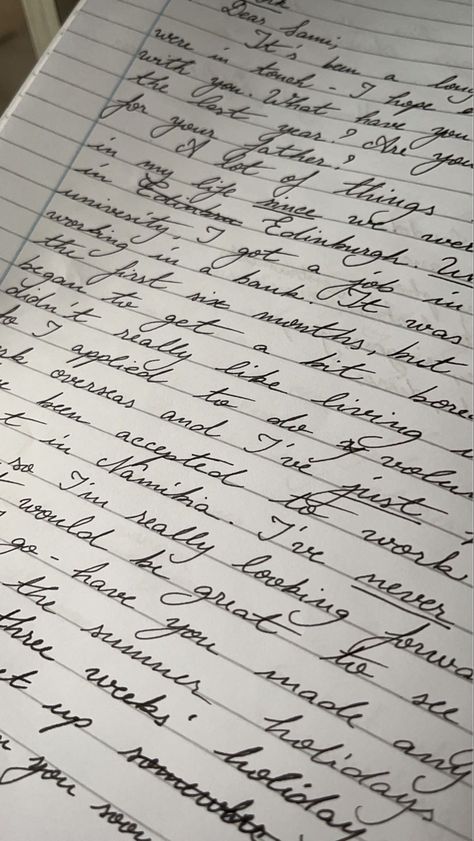 Dear Sami,
It's been a long
were in touch - I hope
with you. What have you
the last year? Are you
for your father?
A lot of things
in my life since we wer
in Edinburgh.
university, I got a job in
working in a bank. It was
the first six months, but
began to get a bit bore
didn't really like living
I applied to do volu
overseas and I've just
been accepted to work
t in Namibia. I've never
so I'm really looking forwa
would be great to see
go - have you made any
the summer holidays
three weeks' holiday
et up
you soon